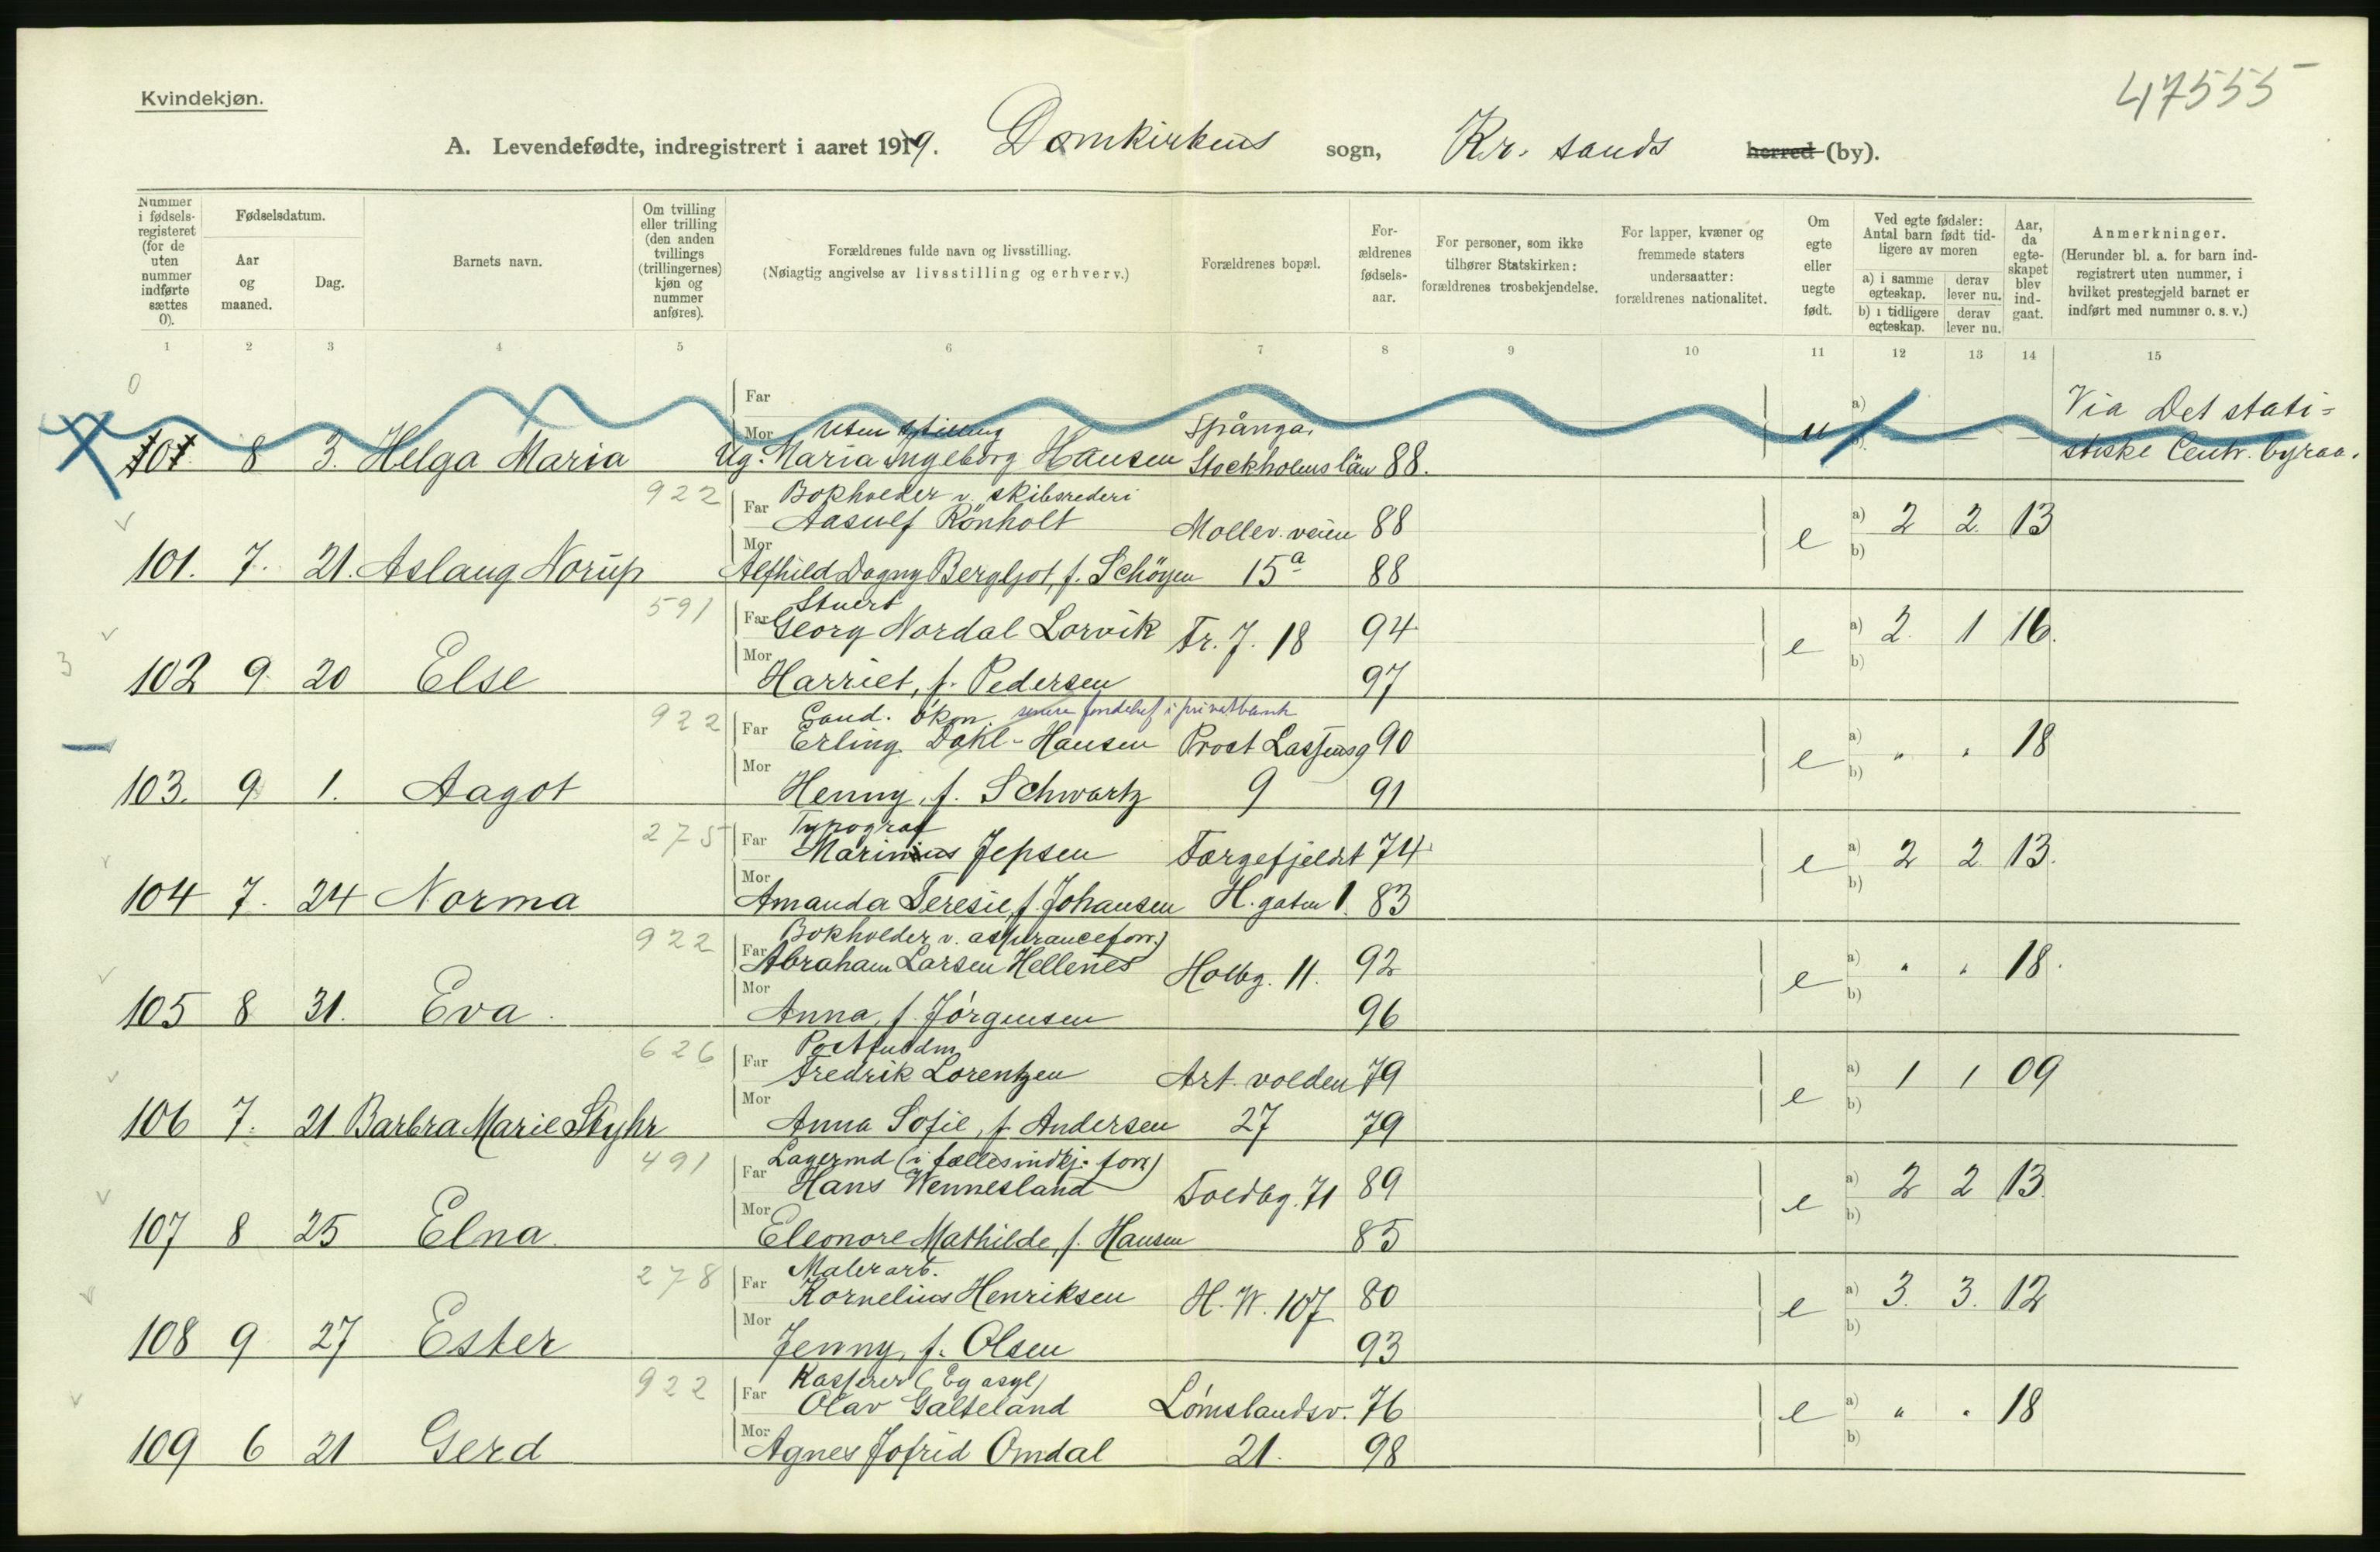 Kvindekjøn.
47555
A. Levendefødte, indregistrert i aaret 1919. Domkirkens sogn, Kr. sands herred (by).
Nummer i fødsels-registeret (for de uten nummer indførte sættes 0).
Fødselsdatum.
Aar og maaned.
Dag.
Barnets navn.
Om tvilling eller trilling (den anden tvillings (trillingernes) kjøn og nummer anføres).
Forældrenes fulde navn og livsstilling.
(Nøiagtig angivelse av livsstilling og erhverv.)
Forældrenes bopæl.
For-ældrenes fødsels-aar.
For personer, som ikke tilhører Statskirken: forældrenes trosbekjendelse.
For lapper, kvæner og fremmede staters undersaatter: forældrenes nationalitet.
Om egte eller uegte født.
Ved egte fødsler: Antal barn født tid-ligere av moren
a) i samme egteskap.
derav lever nu.
b) i tidligere egteskap.
derav lever nu.
Aar, da egte-skapet blev ind-gaat.
Anmerkninger.
(Herunder bl. a. for barn ind-registrert uten nummer, i hvilket prestegjeld barnet er indført med nummer o. s. v.)
1 2 3 4 5 6 7 8 9 10 11 12 13 14 15
0
Far
Via Det stati=
Mor Uten stilling Spånga, u a) — —
101. 8 3. Helga Maria Ug. Maria Ingeborg Hansen Stockholms län 88. stiske Centr. byraa.
922 Bokholder v. skibsrederi
Far Aasulf Rönholt Mollev. veien 88 e a) 2 2 13
Mor b)
101. 7. 21. Aslaug Norup Alfhild Dagny Bergljot, f. Schöyen 15a 88
591 Stuert
Far Georg Nordal Lorvik Fr. J. 18 94 e a) 2 1 16.
3 Mor b)
102 9 20 Else Harriet, f. Pedersen 97
922 Cand. økon. senere fondchef i privatbank
Far Erling Dahl-Hansen Prost Lassensg 90 e a) " " 18
Mor b)
103. 9 1. Aagot Henny, f. Schwartz 9 91
275 Typograf
Far Marinius Jepsen Torgefjeldet 74 e a) 2 2 13.
Mor b)
104 7. 24 Norma Amanda Teresie, f. Johansen H. gaten 1. 83
922 Bokholder v. assuranceforr.)
Far Abraham Larsen Hellenes Holbg. 11. 92 e a) " " 18.
Mor b)
105 8 31. Eva. Anna, f. Jørgensen 96
626 Postfuldm
Far Fredrik Lorentzen Art. volden 79 e a) 1 1 09
Mor b)
106 7. 21 Barbra Marie Styhr Anna Sofie, f. Andersen 27 79
491 Lagermd (i fællesindkj. forr)
Far Hans Wennesland Toldbg. 71 89 e a) 2 2 13
Mor b)
107 8 25 Elna. Eleonore Mathilde, f. Hansen 85
278 Malerarb.
Far Kornelius Henriksen H. W. 107 80 e a) 3. 3. 12
Mor b)
108 9 27 Ester Jenny, f. Olsen 93
922 Kasserer (Eg asyl)
Far Olav Galteland Lømslandsv. 76 e a) " " 18
Mor b)
109 6 21 Gerd Agnes Jofrid Omdal 21. 98